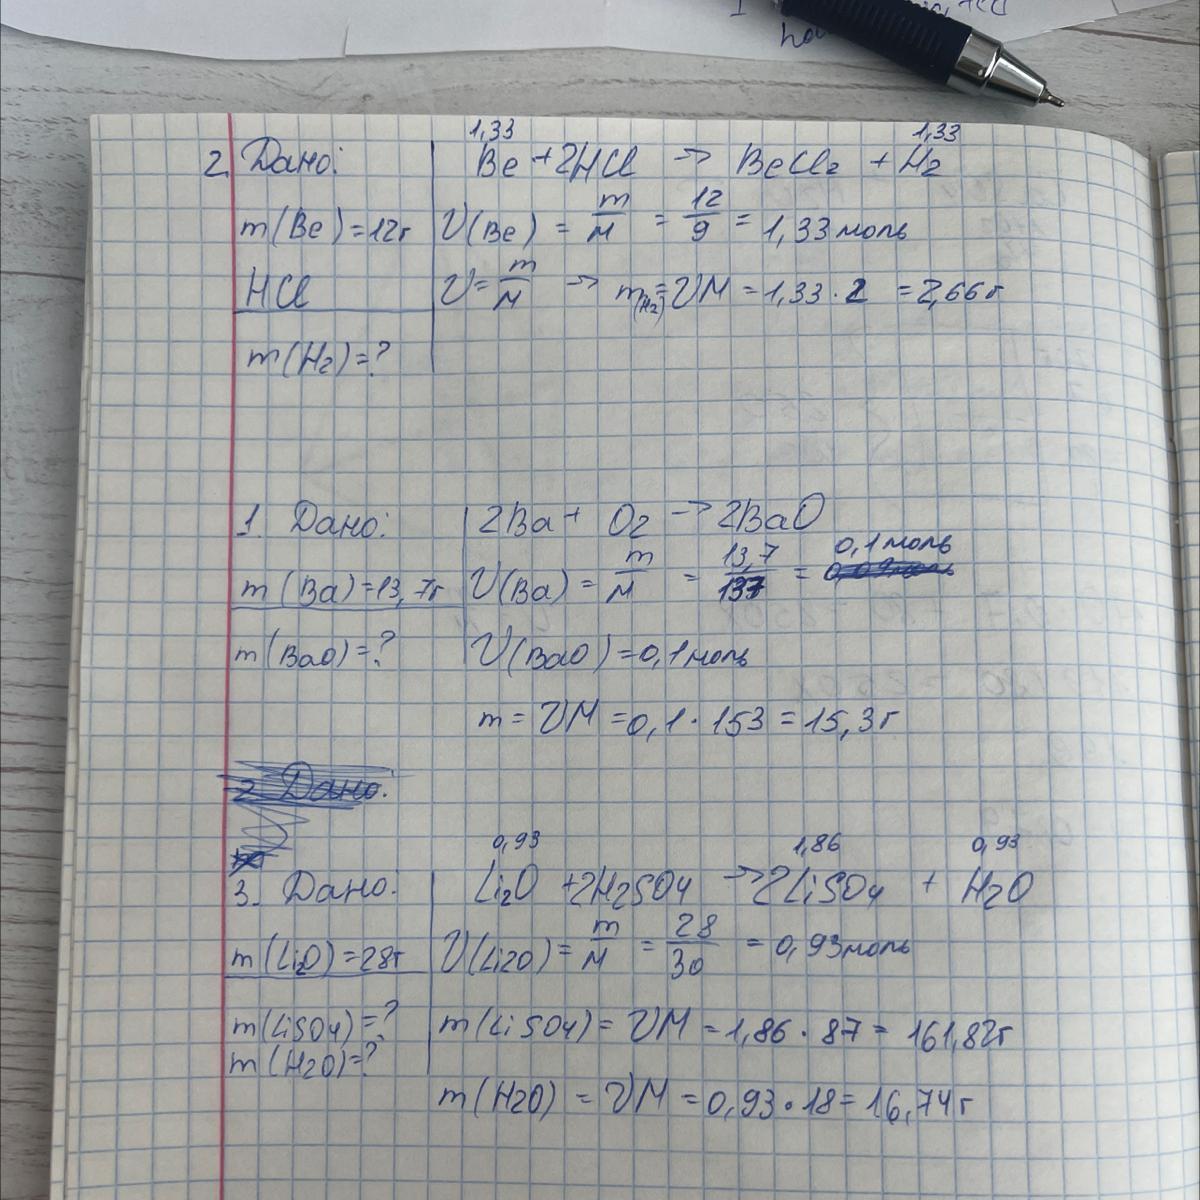 2. Дано:
m(Be)=12г
HCl
m(H2)=?
1,33 1,33
Be+2HCl → BeCl2 + H2
ν(Be) = m/M = 12/9 = 1,33 моль
ν = m/M → m(H2)=νM = 1,33 · 2 = 2,66 г
1. Дано:
m(Ba)=13,7г
m(BaO)=?
2Ba + O2 → 2BaO
ν(Ba) = m/M = 13,7/137 = 0,1 моль
ν(BaO)=0,1 моль
m = νM = 0,1 · 153 = 15,3г
2 Дано:
3. Дано:
m(Li2O)=28г
m(LiSO4)=?
m(H2O)=?
0,93 1,86 0,93
Li2O +2H2SO4 → 2LiSO4 + H2O
ν(Li2O)= m/M = 28/30 = 0,93моль
m(LiSO4) = νM = 1,86 · 87 = 161,82г
m(H2O) = νM = 0,93 · 18 = 16,74г